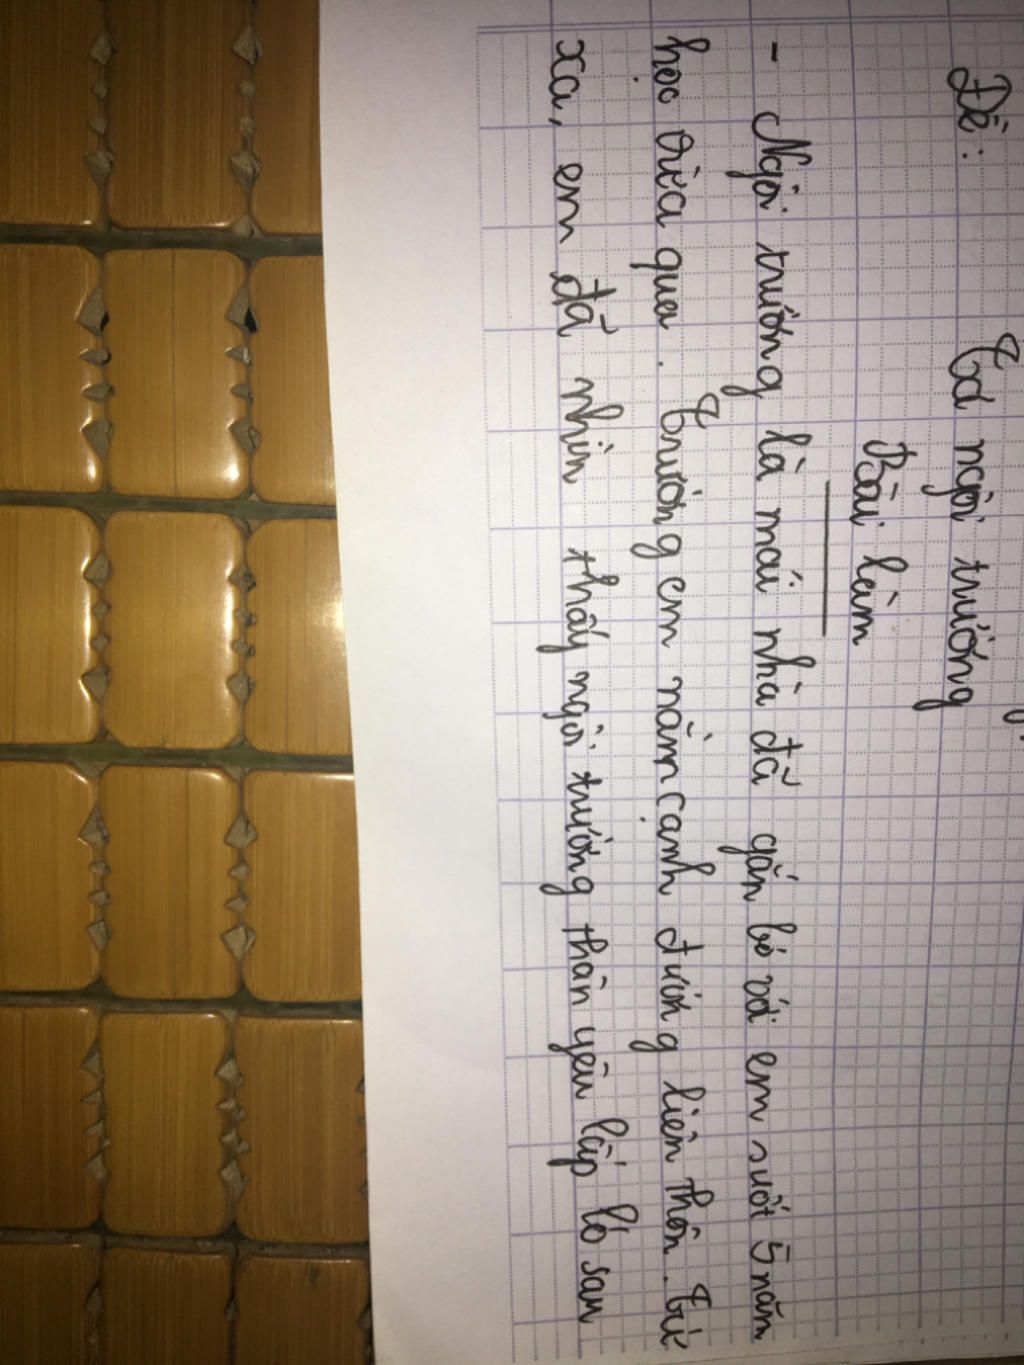 Đề: Tả ngôi trường
Bài làm
- Ngôi trường là mái nhà đã gắn bó với em suốt 5 năm
học vừa qua. Trường em nằm cạnh đường liên thôn. Từ
xa, em đã nhìn thấy ngôi trường thân yêu lấp ló sau